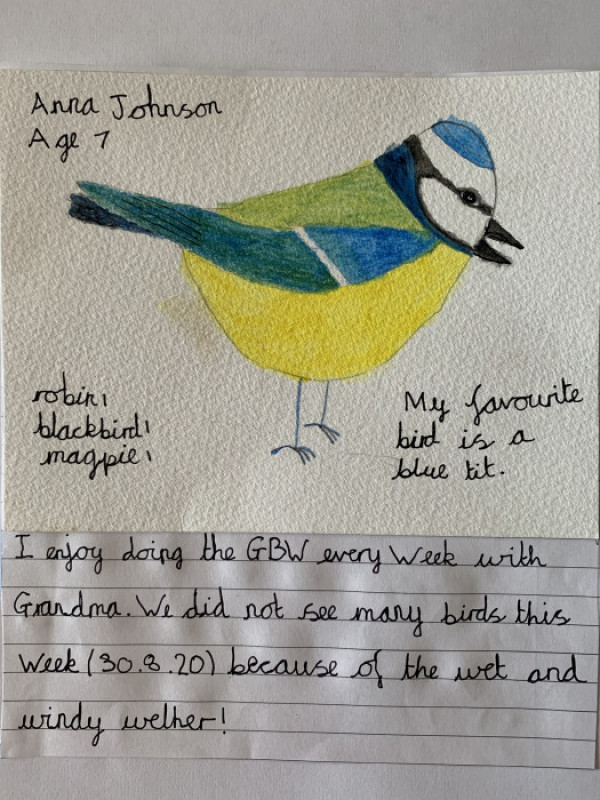 Anna Johnson
Age 7
robin 1
blackbird 1
magpie 1
My favourite
bird is a
blue tit.
I enjoy doing the GBW every Week with
Grandma. We did not see many birds this
Week (30.8.20) because of the wet and
windy wether!